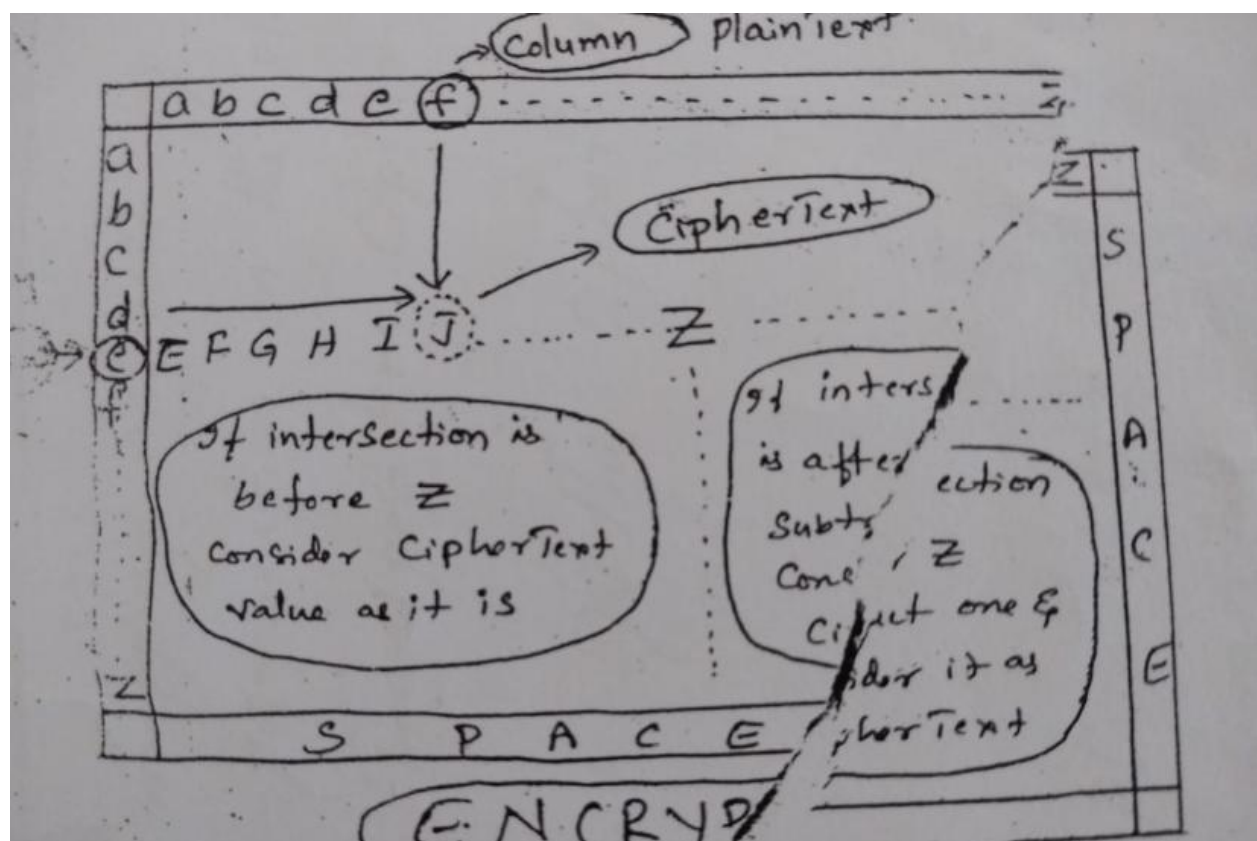 Column PlainText
a b c d e f z
a
b
c
d
e E F G H I J Z
f
z
CipherText
If intersection is
before Z
consider CipherText
value as it is
If inters
is after
Subtr
Con
Ci
ection
Z
ct one &
sider it as
pherText
Z
S
P
A
C
E
S P A C E
ENCRYP